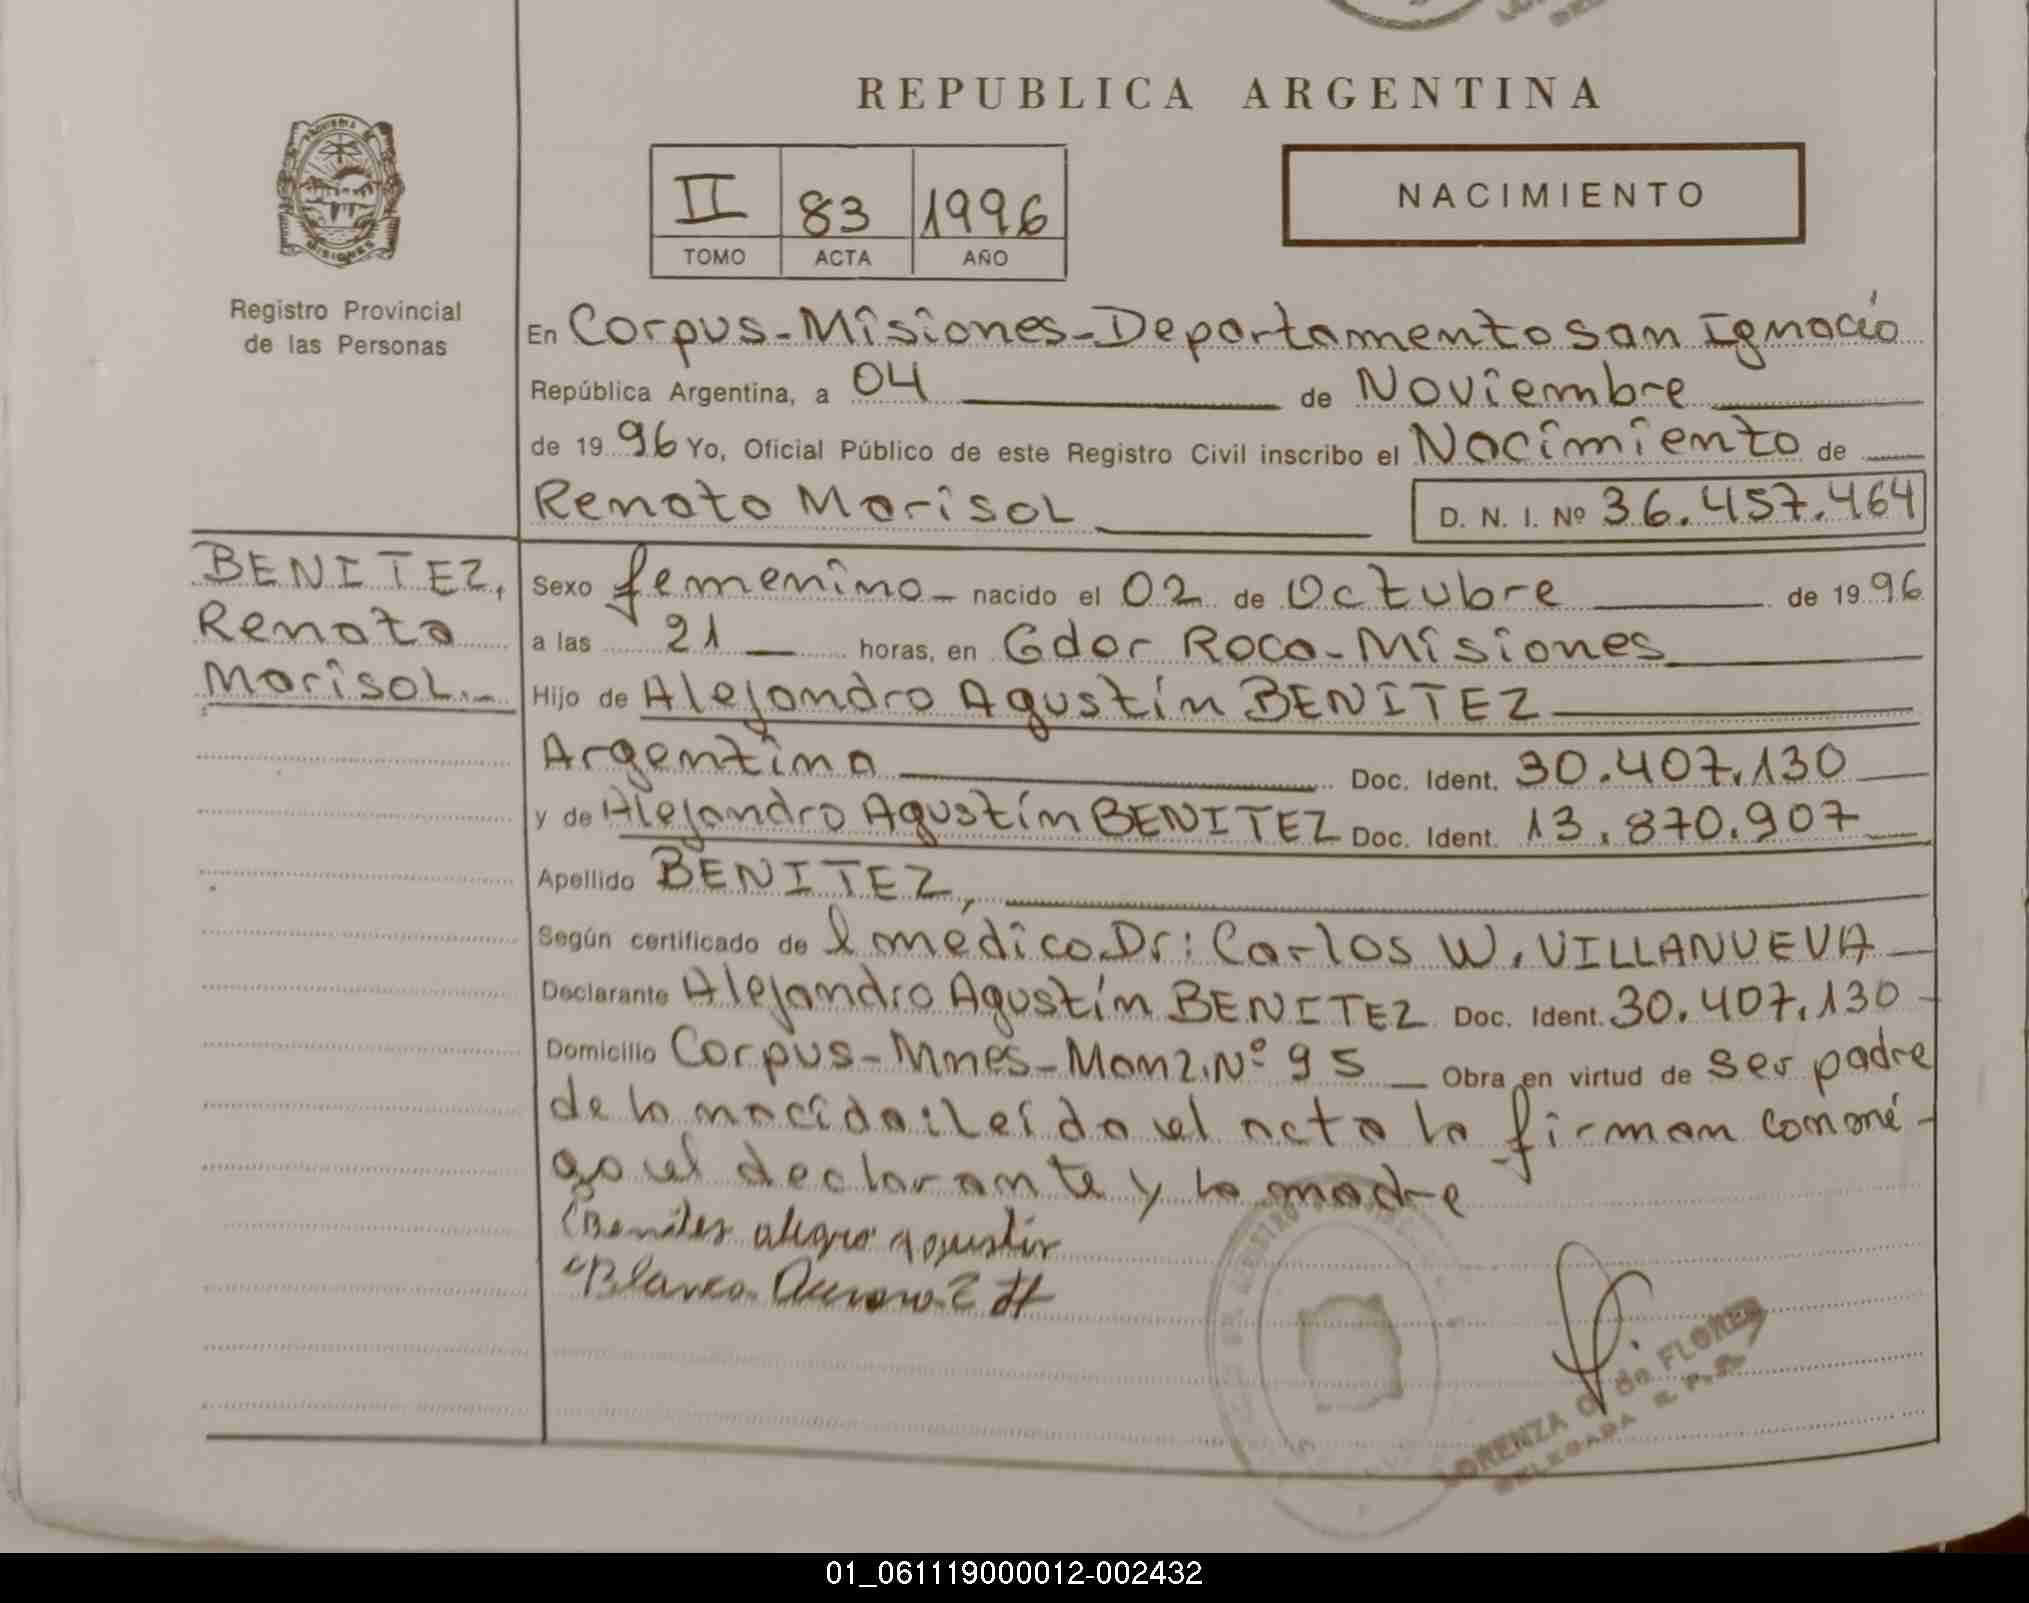 REPUBLICA ARGENTINA
II 83 1996
TOMO ACTA AÑO
NACIMIENTO
Registro Provincial
de las Personas
En Corpus-Misiones-Departamento San Ignacio
República Argentina, a 04 de Noviembre
de 1996 Yo, Oficial Público de este Registro Civil inscribo el Nacimiento de
Renata Marisol D. N. I. Nº 36.457.464
BENITEZ,
Renata
Marisol.-
Sexo femenino- nacido el 02 de Octubre de 1996
a las 21 horas, en Gdor Roca-Misiones
Hijo de Alejandro Agustín BENITEZ
Argentina Doc. Ident. 30.407.130
y de Alejandro Agustín BENITEZ Doc. Ident. 13.870.907
Apellido BENITEZ,
Según certificado de l medico Dr: Carlos W. VILLANUEVA
Declarante Alejandro Agustín BENITEZ Doc. Ident. 30.407.130
Domicilio Corpus-Mnes-Manz.Nº 95 Obra en virtud de ser padre
de la nacida: Leída el acta la firman conmi-
go el declarante y la madre
Benites agustin
Blanca
LORENZA de FLORES
DELEGADA R. P. P.
01_061119000012-002432